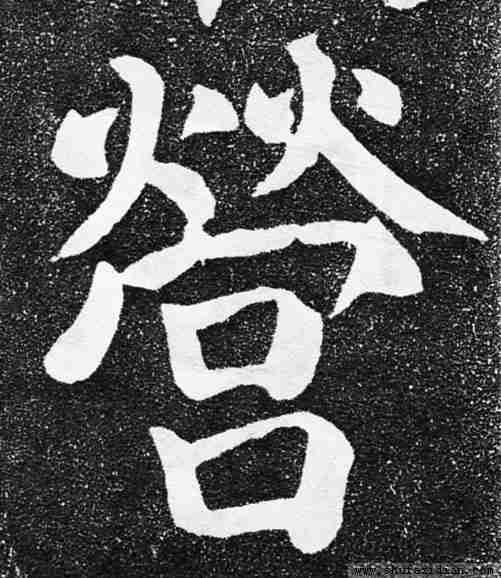 營
www.shufazidian.com